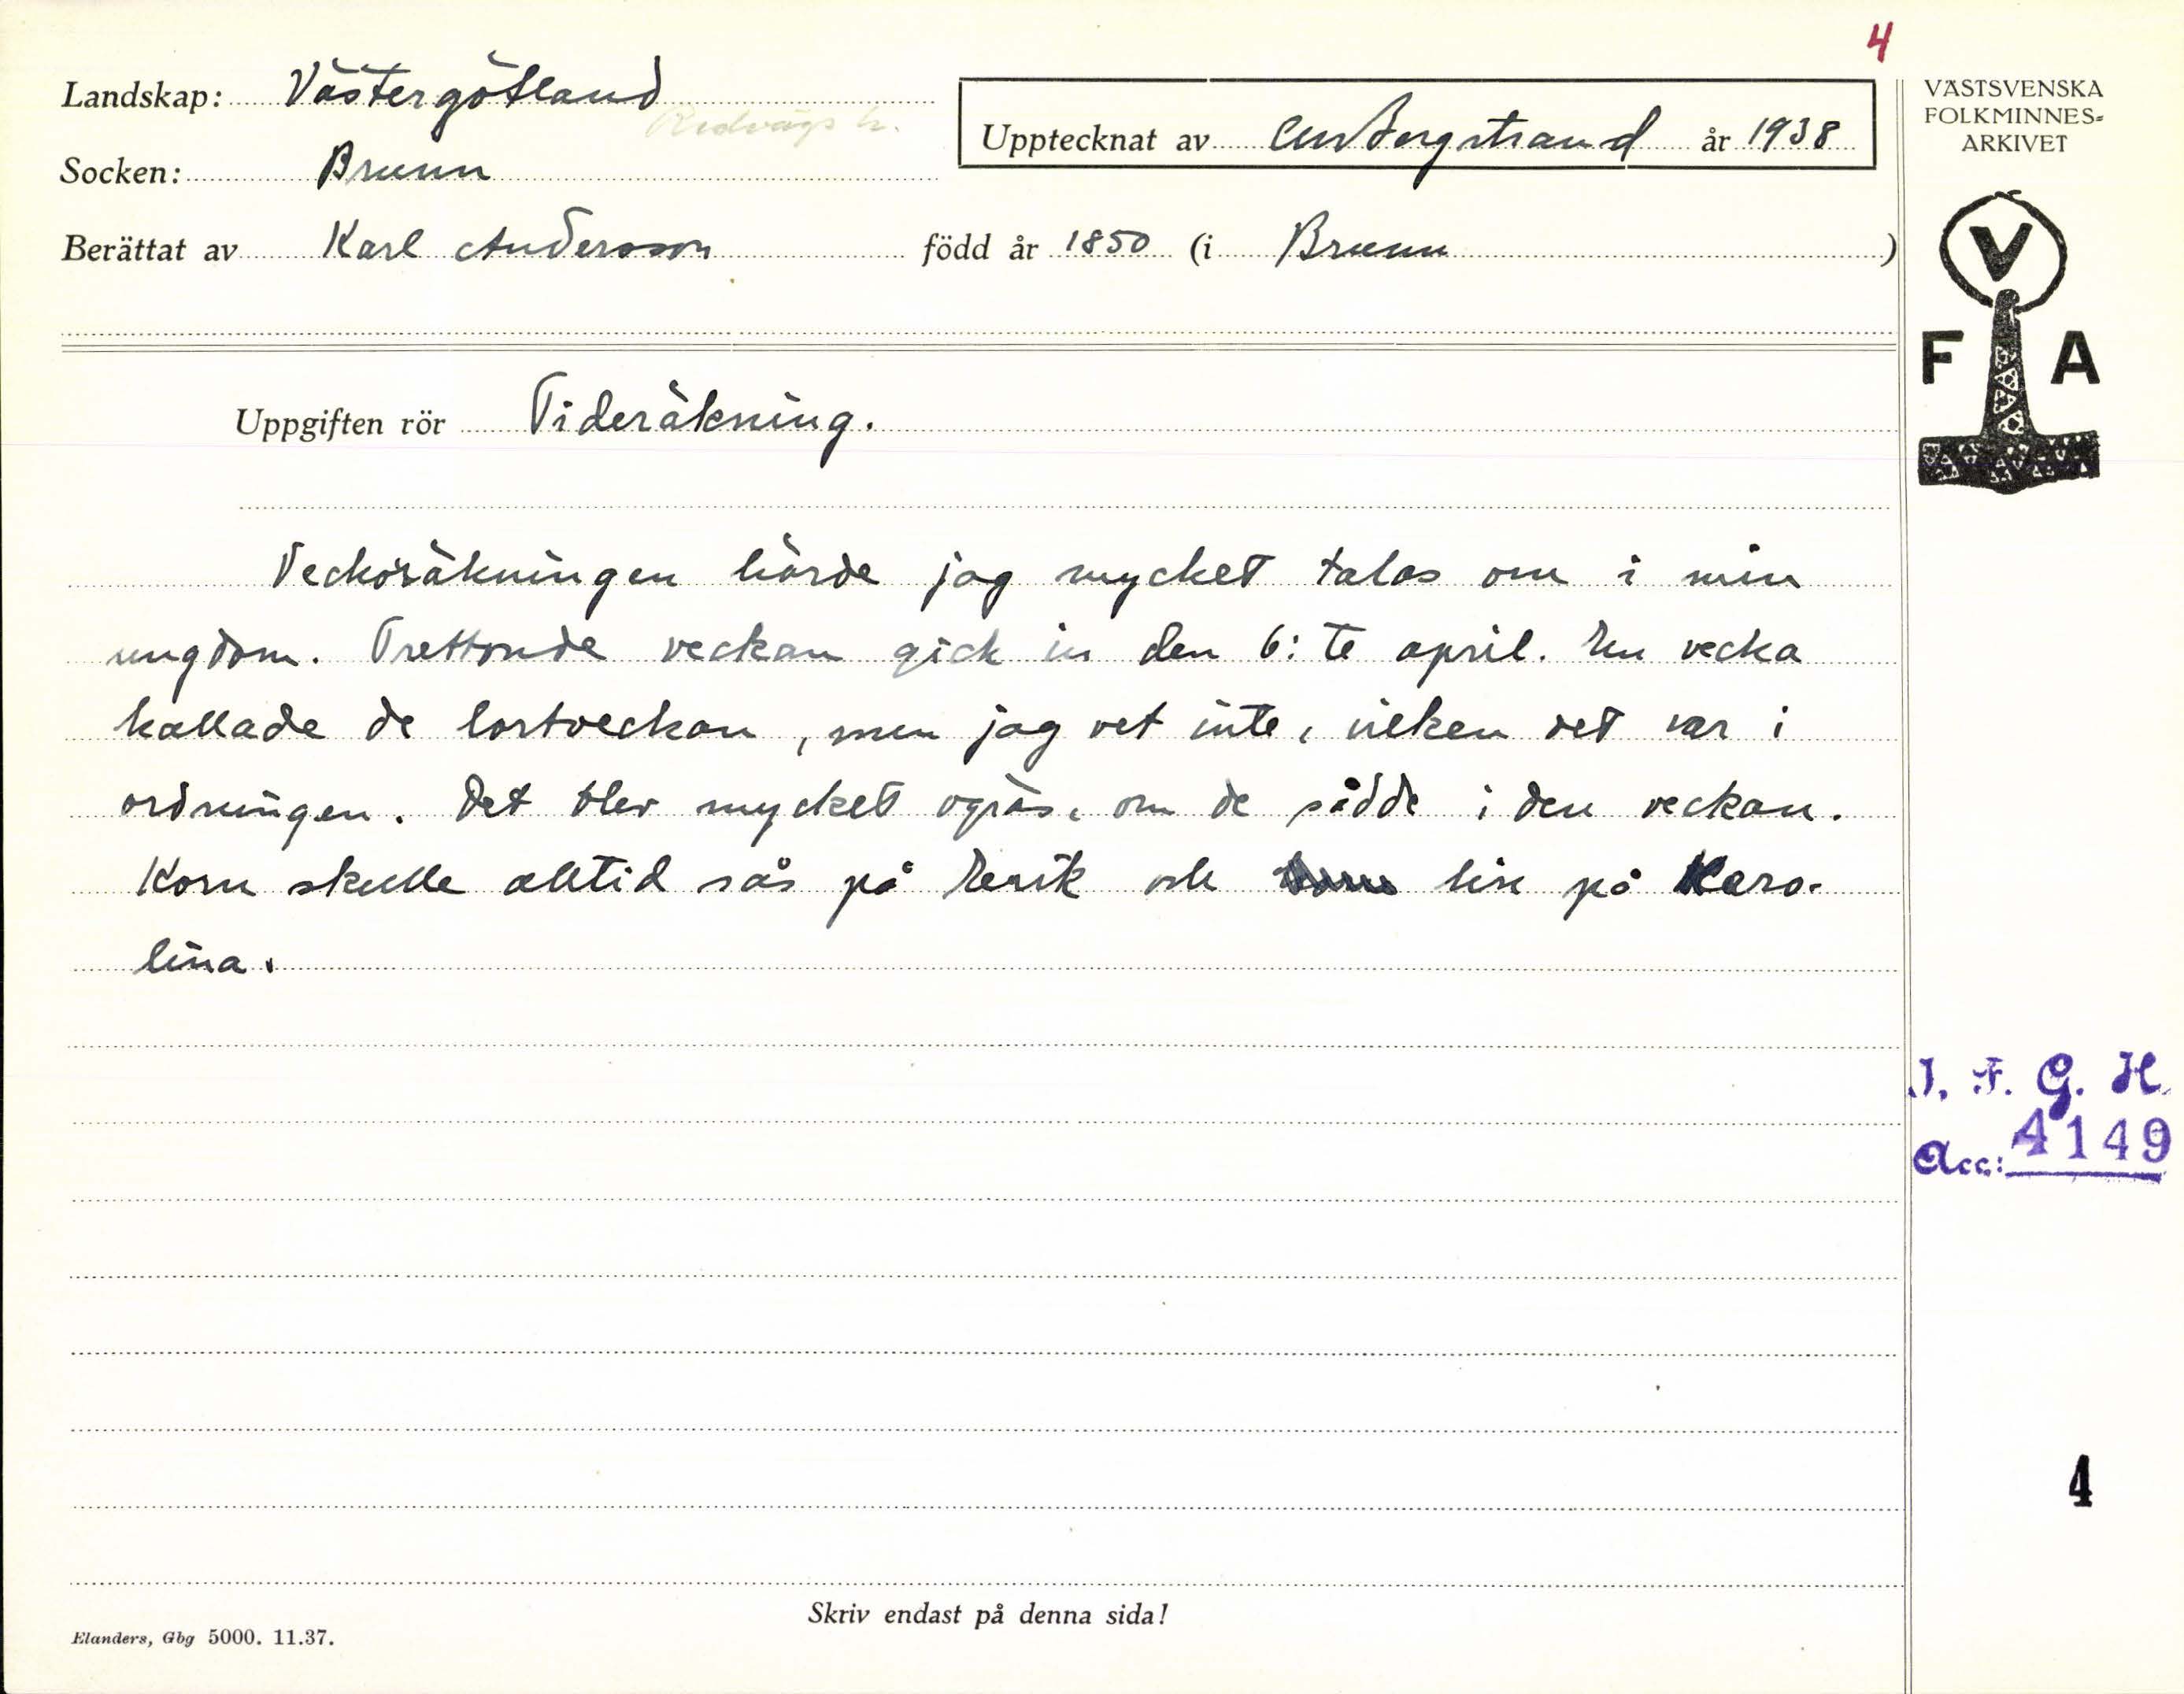 4
Landskap: Västergötland
Redvägs h.
Upptecknat av CM Bergstrand år 1938
VÄSTSVENSKA
FOLKMINNES=
ARKIVET
Socken: Brunn
Berättat av Karl Andersson född år 1850 (i Brunn )
V
F A
Uppgiften rör Tideräkning.
Veckoräkningen hörde jag mycket talas om i min
ungdom. Trettonde veckan gick in den 6:te april. En vecka
kallade de lortveckan, men jag vet inte, vilken det var i
ordningen. Det blev mycket ogräs, om de sådde i den veckan.
Korn skulle alltid sås på Erik och lin på Karo-
lina.
I. F. G. H.
Acc: 4149
4
Skriv endast på denna sida!
Elanders, Gbg 5000. 11.37.